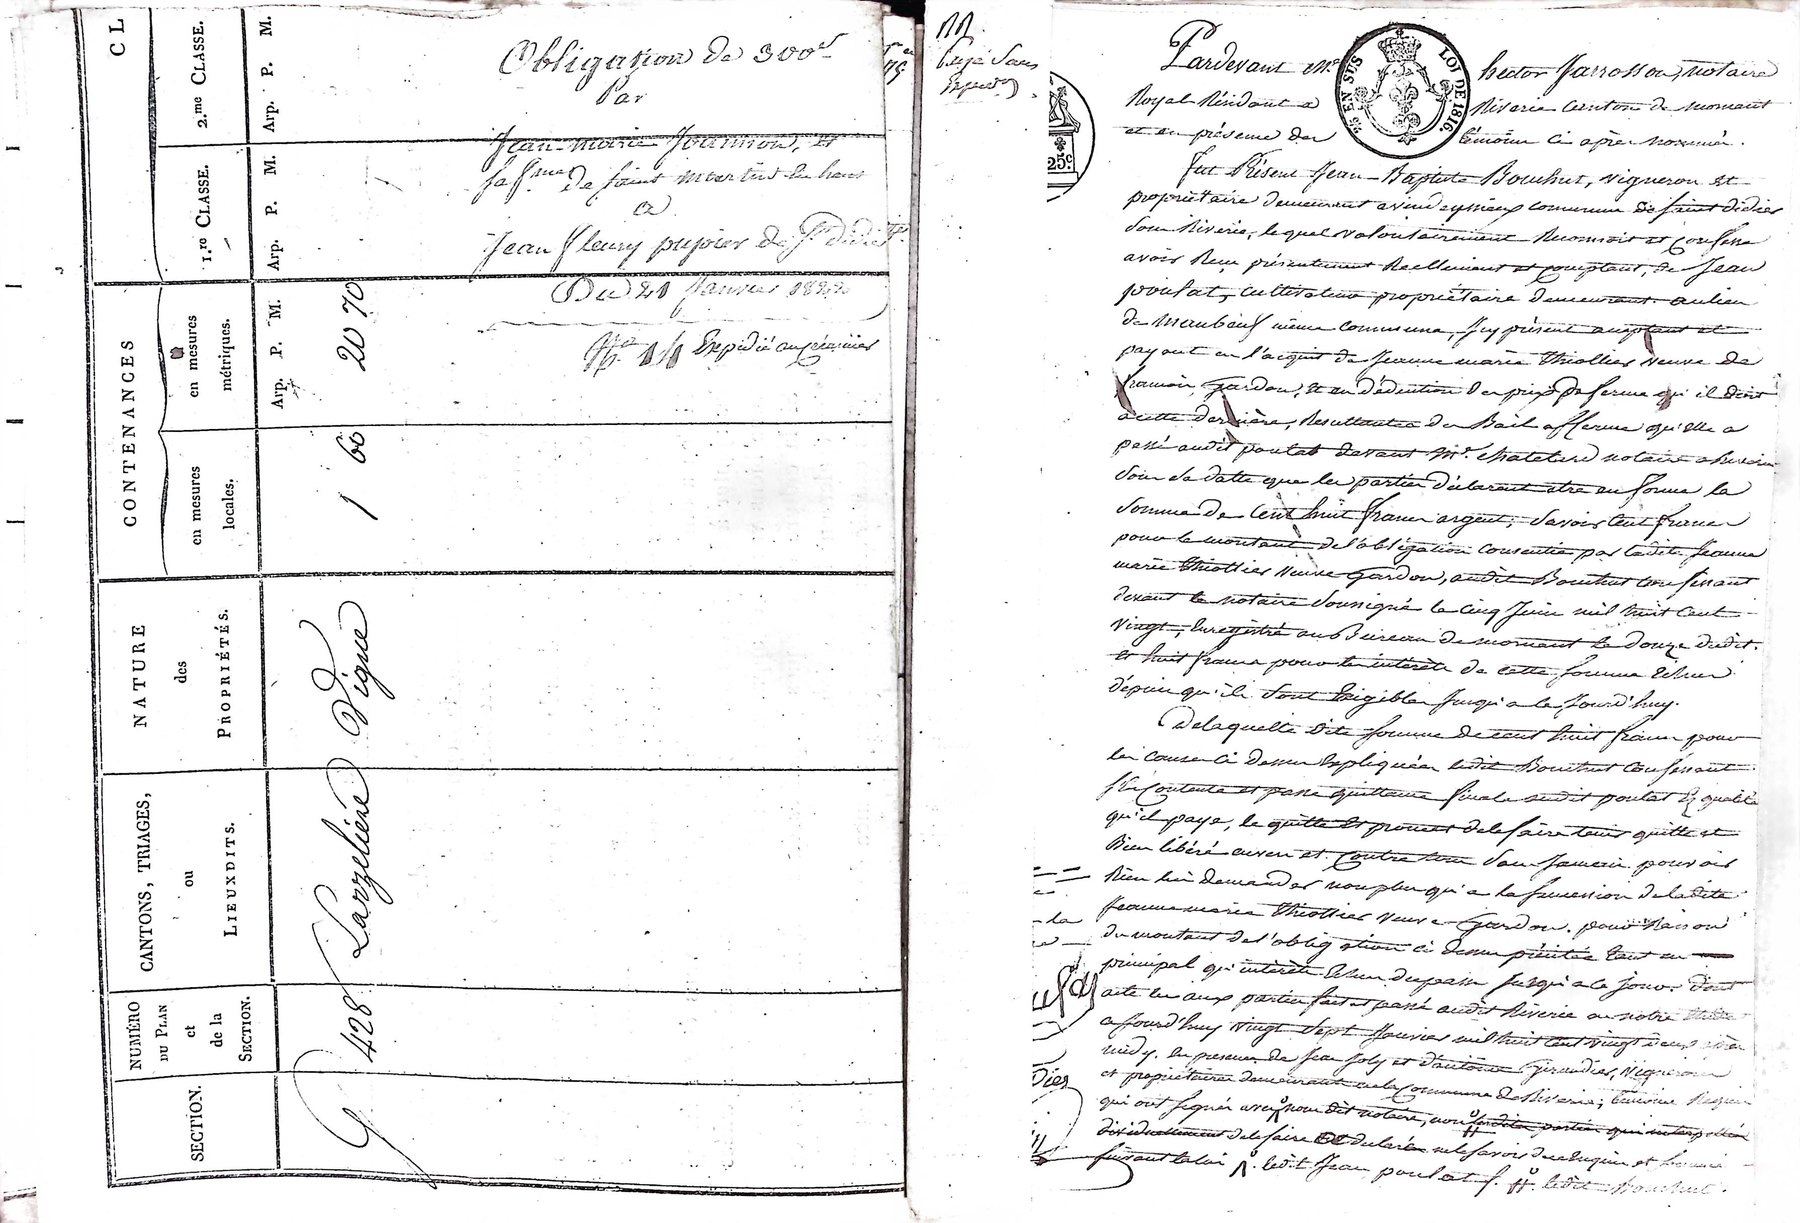 Obligation de 300 f
Par
Jean-marie Journoud, et
sa f.me de saint martin en haut
a
Jean fleury pupier de St didier
Du 21 Janvier 1822
N.o 14 Expédié au créancier
CL
1.re CLASSE.
2.me CLASSE.
Arp. P. M.
Arp. P. M.
CONTENANCES
en mesures
locales.
en mesures
métriques.
Arp. P. M.
NATURE
des
PROPRIÉTÉS.
CANTONS, TRIAGES,
ou
LIEUXDITS.
NUMÉRO
DU PLAN
et
de la
SECTION.
SECTION.
G 428 Lazzelière Vigne 1 60 20 70
25c
25 EN SUS
LOI DE 1816.
Pardevant M.e hector Jarrosson, notaire
Royal Résidant a Riverie canton de mornant
et en présence des témoins ci après nommés.
fut Présent Jean-Baptiste Bouchut, vigneron et
propriétaire demeurant a vindeymieux commune de saint didier
sous Riverie, lequel volontairement Reconnoit et confesse
avoir Reçu présentement Reellement et comptant, de Jean
poulat, cultivateur propriétaire demeurant au lieu
de maubeuf même commune, Icy présent acceptant et
payant en l'acquit de Jeanne marie thiollier veuve de
françois Gardon, et en déduction des prix de ferme qu'il doit
a cette dernière, Resultantes du Bail a fferme qu'elle a
passé audit poulat devant M.e chatelard notaire a
sous sa datte que les parties déclarent etre en forme la
somme de cent huit francs argent, savoir cent francs
pour le montant de l'obligation consentie par ladite Jeanne
marie thiollier veuve Gardon, audit Bouchut confessant
devant le notaire soussigné le cinq Juin mil huit cent
vingt, Enregistré au Bureau de mornant le douze dudit.
et huit francs pour les intérêts de cette somme Echus
dépuis qu'ils sont Exigibles Jusqu'a ce Jourd'huy.
De laquelle dite somme de cent huit francs pour
les causes ci dessus Expliquées ledit Bouchut confessant
s'est contenté et passe quittance finale audit poulat Ez qualité
qu'il paye, le quitte Et promet de le faire tenir quitte et
Bien libéré envers et contre tous sans Jamais pouvoir
Rien lui demander non plus qu'a la succession de ladite
Jeanne marie thiollier veuve Gardon. pour Raison
du montant de l'obligation ci dessus précitée tant en
principal qu'intérêts Echus du passé Jusqu'a ce Jour. Dont
acte lu aux parties fait et passé audit Riverie en notre
a Jourd'huy vingt sept Janvier mil huit cent vingt deux
midy. En présence de Jean Joly et d'antoine Giraudier, vignerons
et propriétaires demeurant en la commune de Riverie, témoins Requis
qui ont signés avec nous dit notaire, non
de le faire Et déclarés ne le savoir de ce Enquis et sommés
suivant la loi. ledit Jean poulat /. ledit Bouchut.